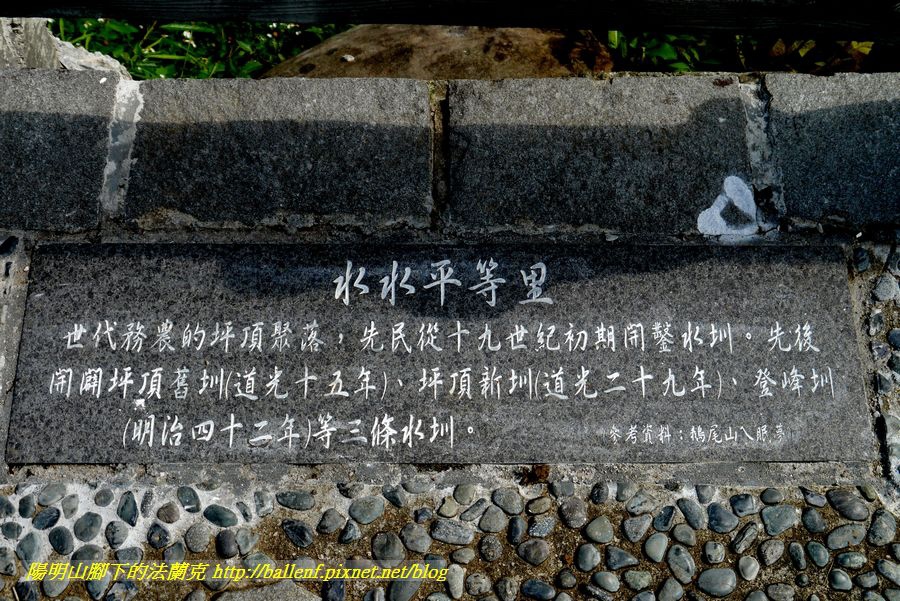 水水平等里
世代務農的坪頂聚落，先民從十九世紀初期開鑿水圳。先後
開闢坪頂舊圳(道光十五年)、坪頂新圳(道光二十九年)、登峰圳
(明治四十二年)等三條水圳。
參考資料：鵝尾山入眼夢
陽明山腳下的法蘭克 http://ballenf.pixnet.net/blog